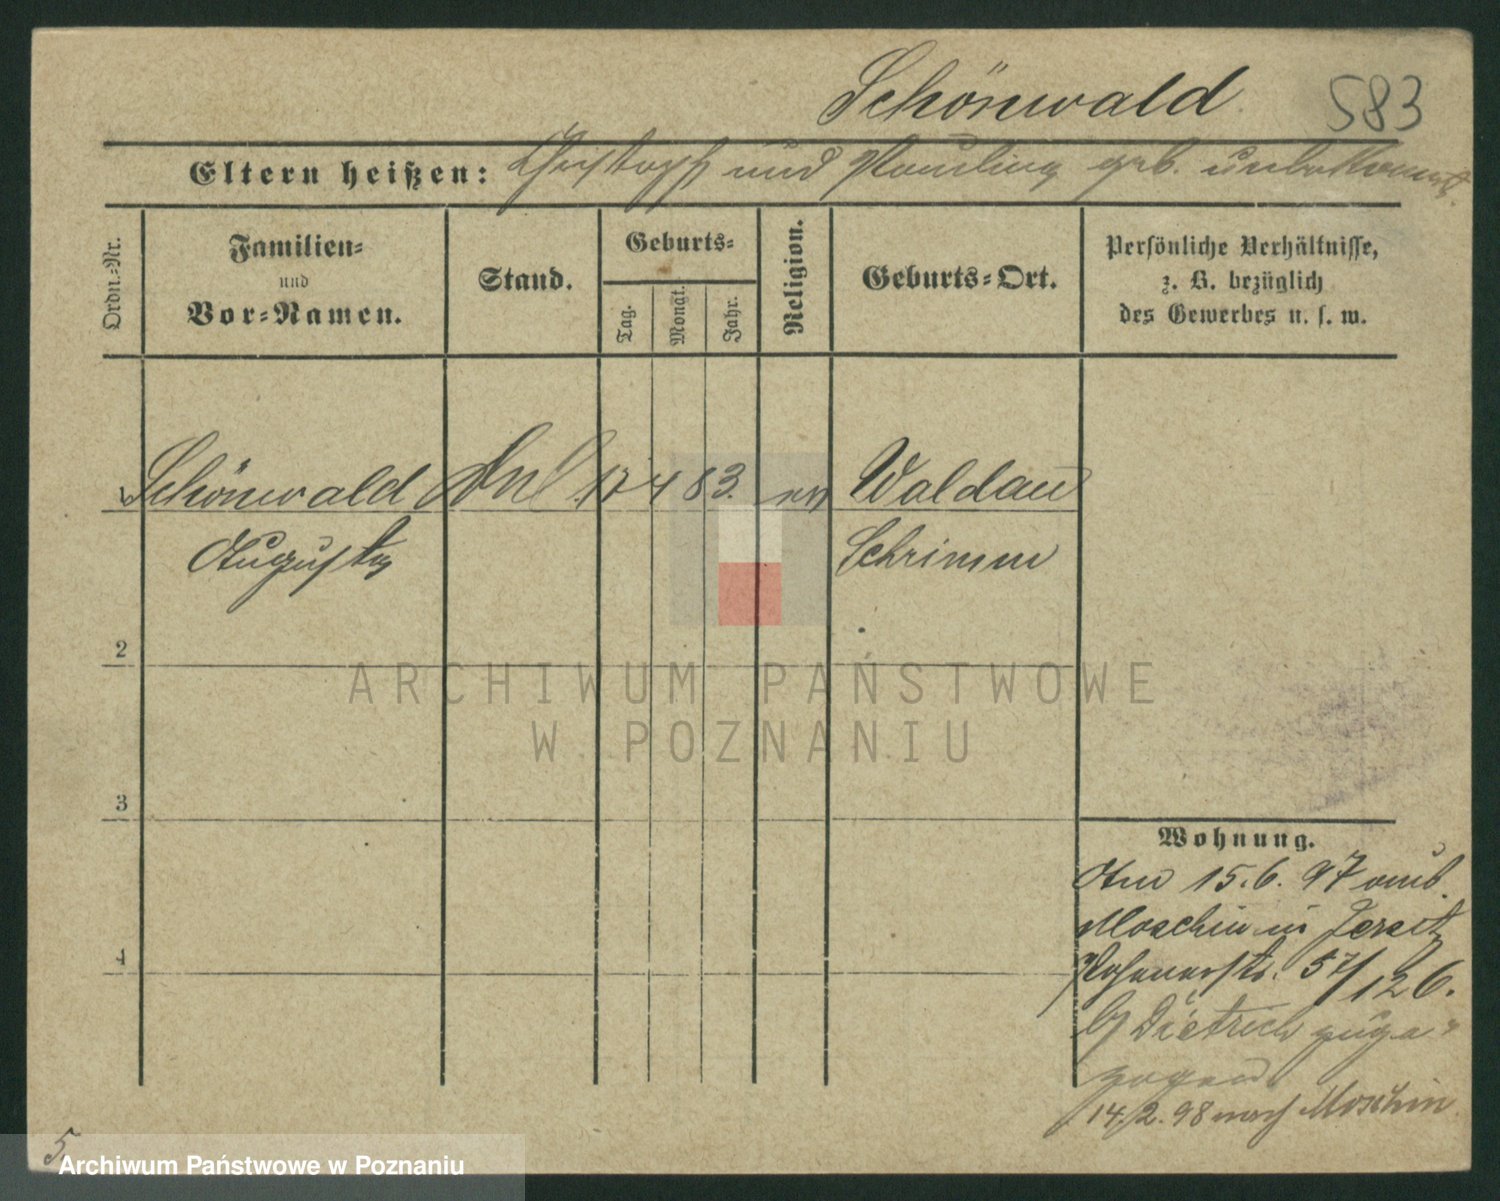 Schönwald 583
Eltern heißen: Christoph und Paulina geb. unbekannt
Ordn.-Nr.
Familien-
und
Vor-Namen.
Stand.
Geburts-
Tag.
Monat.
Jahr.
Religion.
Geburts-Ort.
Persönliche Verhältnisse,
z. B. bezüglich
des Gewerbes u. s. w.
1 Schönwald 17 4 83. ev Waldau
Augusta Schrimm
2
3
4
Wohnung.
Am 15.6.97 aus
Moschin in Jersitz
Posenerstr. 57/126.
b/ Dietrich zuge-
zogen
14/2.98 nach Moschin
5
ARCHIWUM PAŃSTWOWE
W POZNANIU
Archiwum Państwowe w Poznaniu